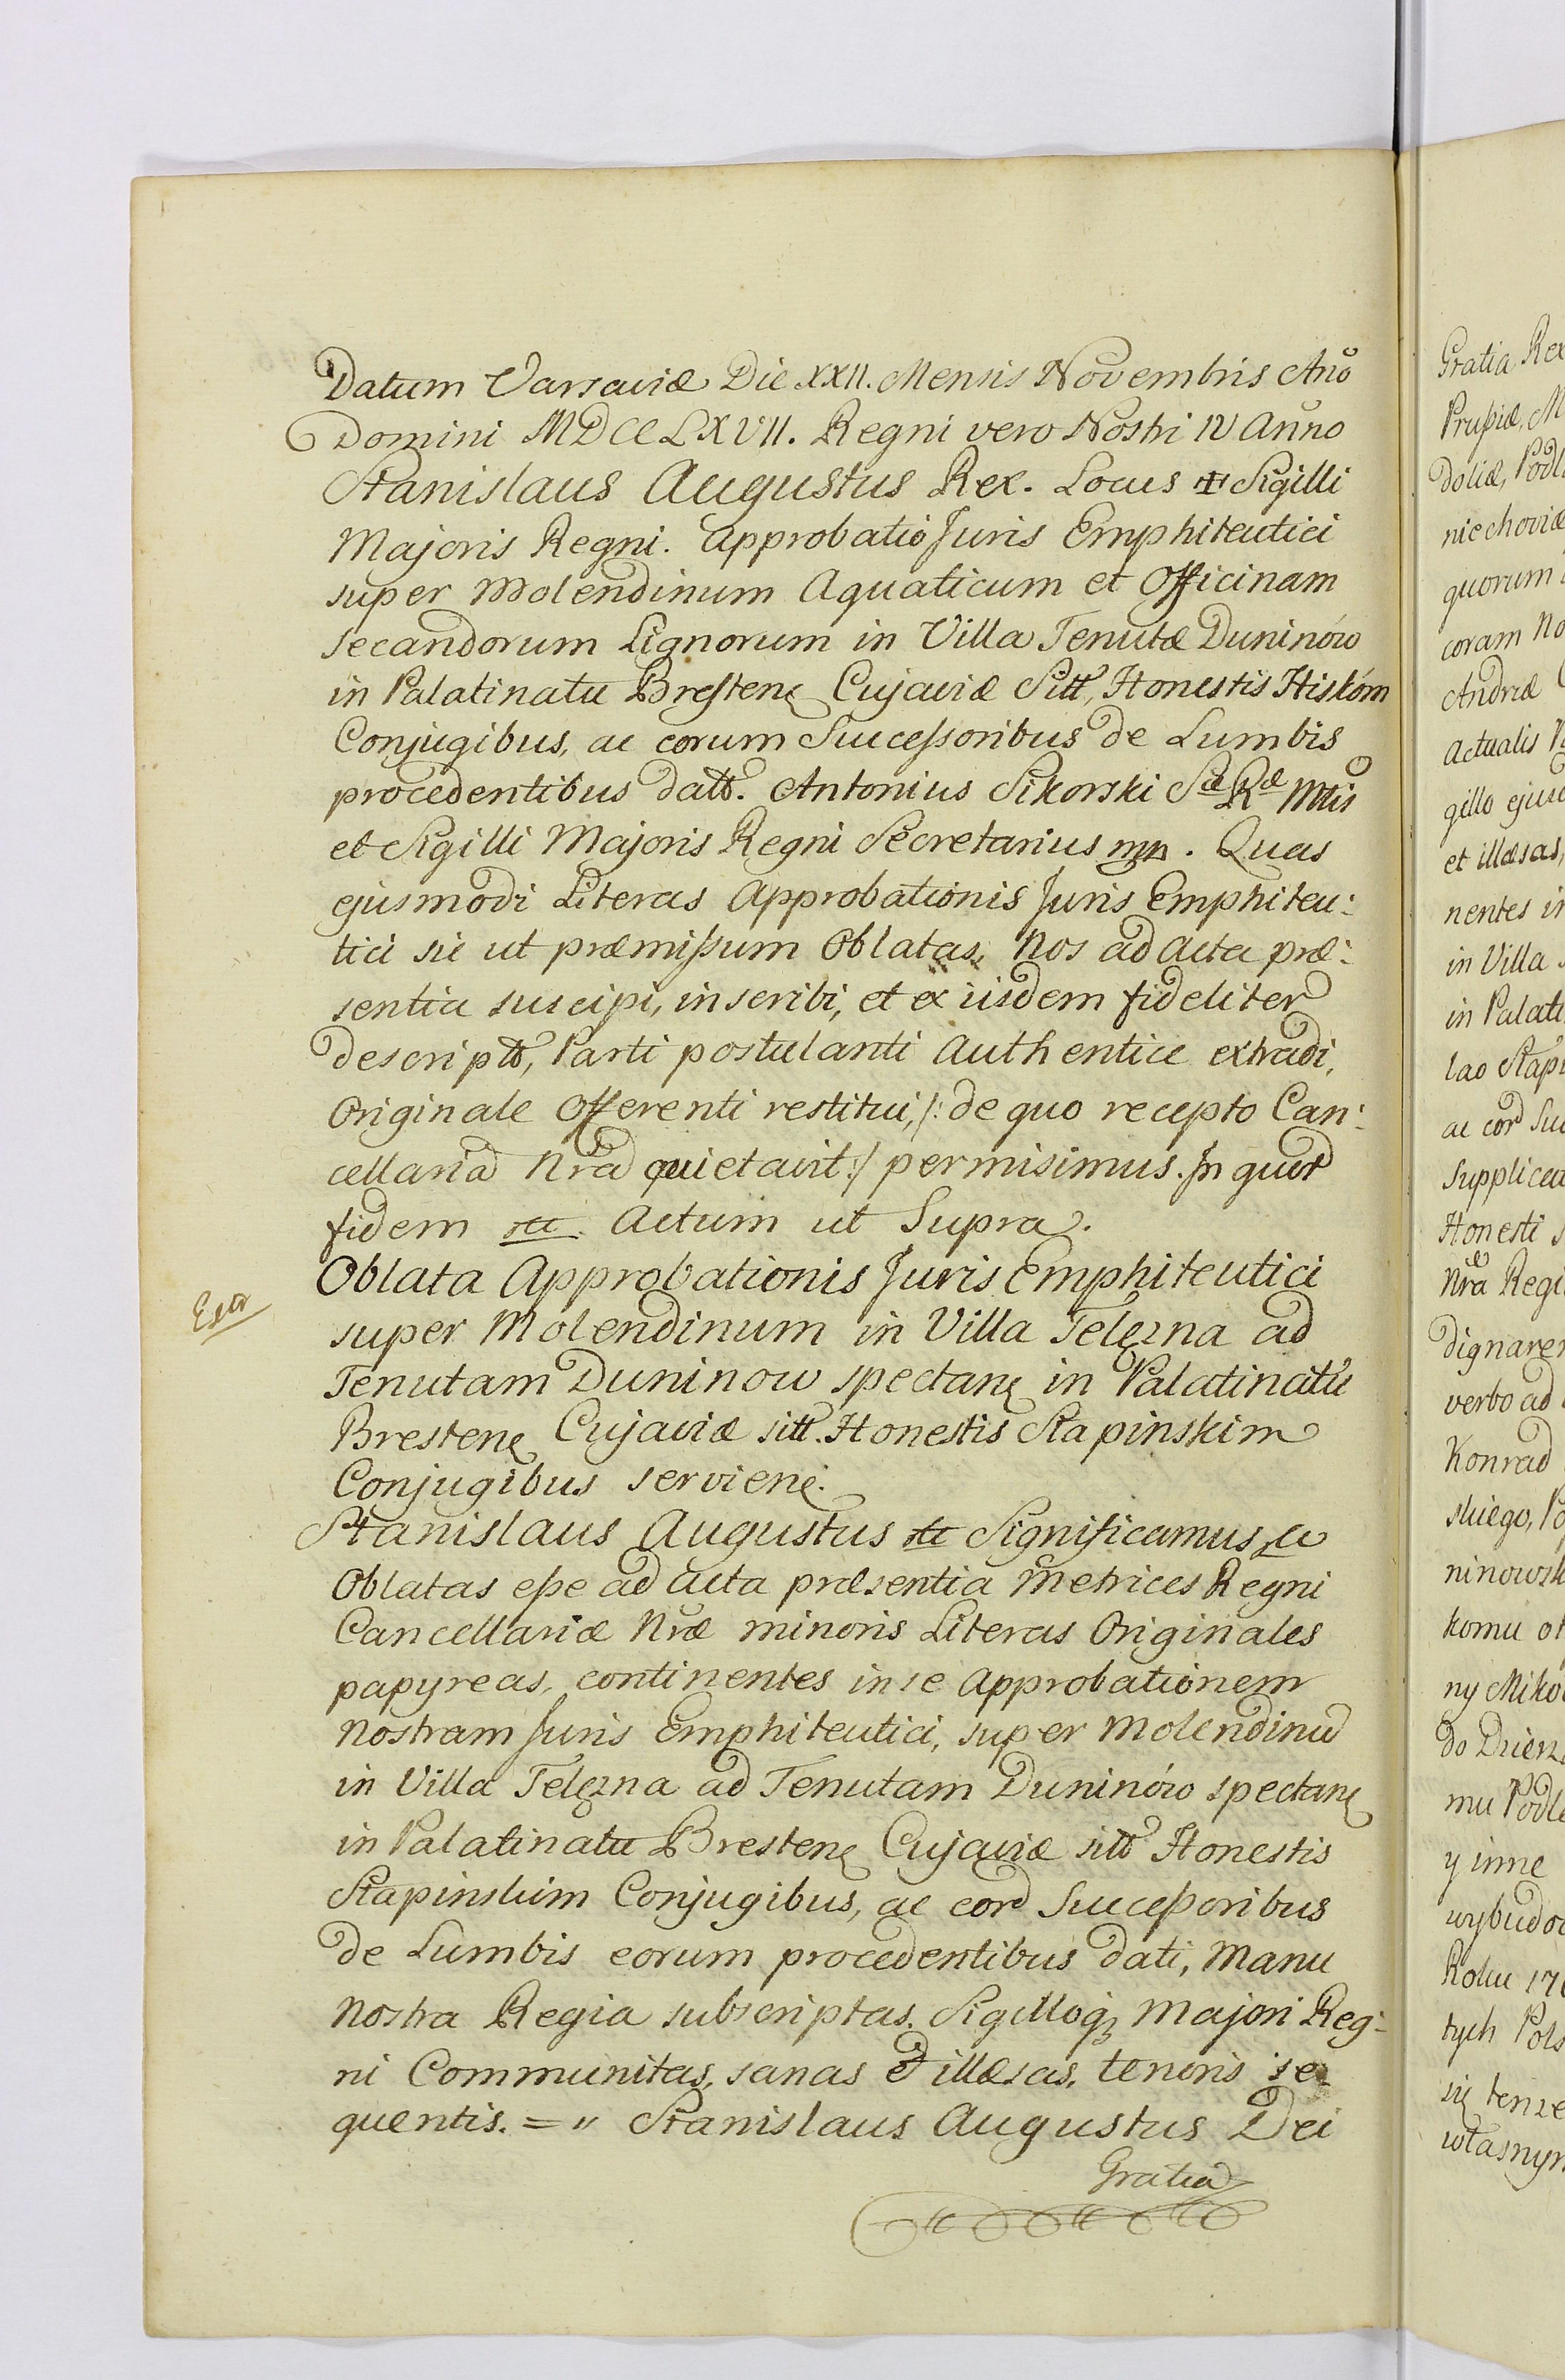 Datum Varsaviæ Die XXII. Mensis Novembris Año
Domini MDCCLXVII. Regni vero Nostri IV Anno
Stanislaus Augustus Rex. Locus ✠ Sigilli
Majoris Regni. Approbatio Juris Emphiteutici
super Molendinum Aquaticum et Officinam
secandorum Lignorum in Villa Tenutæ Duninów
in Palatinatu Brestenę Cujaviæ Sitt, Honestis Hiskom
Conjugibus, ac eorum Successoribus de Lumbis
procedentibus datt. Antonius Sikorski Sæ Ræ Mtis
et Sigilli Majoris Regni Secretarius mp. Quas
ejusmodi Literas Approbationis Juris Emphiteu:
tici sic ut præmissum Oblatas, Nos ad Acta præ:
sentia suscipi, inscribi, et ex iisdem fideliter
descriptt, Parti postulanti Authentice extradi,
Originale Offerenti restitui, /: de quo recepto Can:
cellaria Nra quietavit :/ permisimus. In quor
fidem etc. Actum ut Supra.
Oblata Approbationis Juris Emphiteutici
super Molendinum in Villa Telęzna ad
Tenutam Duninow spectanę in Palatinatu
Brestenę Cujaviæ sitt. Honestis Stapinskim
Conjugibus servienę.
Stanislaus Augustus etc Significamus etc
Oblatas esse ad Acta præsentia Metrices Regni
Cancellariæ Nræ minoris Literas Originales
papyreas, continentes in se Approbationem
Nostram Juris Emphiteutici, super Molendinū
in Villa Telęzna ad Tenutam Duninów spectanę
in Palatinatu Brestenę Cujaviæ sitt Honestis
Stapinskim Conjugibus, ac eor Successoribus
de Lumbis eorum procedentibus dati, Manu
Nostra Regia subscriptas. Sigilloq3 Majori Reg-
ni Communitas, sanas et illæsas, tenoris se-
quentis. = " Stanislaus Augustus Dei
Gratia
Gratia Rex
Prussiæ, M
doliæ, Podl
niechoviæ
quorum
coram No
Andreæ
Actualis
gillo ejusd
et illæsas,
nentes in
in Villa
in Palati
lao Stapi
ac eor Suc
Supplicat
Honesti
Nra Regi
dignarem
verbo ad
Konrad
skiego, Po
ninowsk
komu
ny Miko
do Dzierz
mu Podle
y inne
wybudo
Roku 17
tych Pols
się tenze
własnym